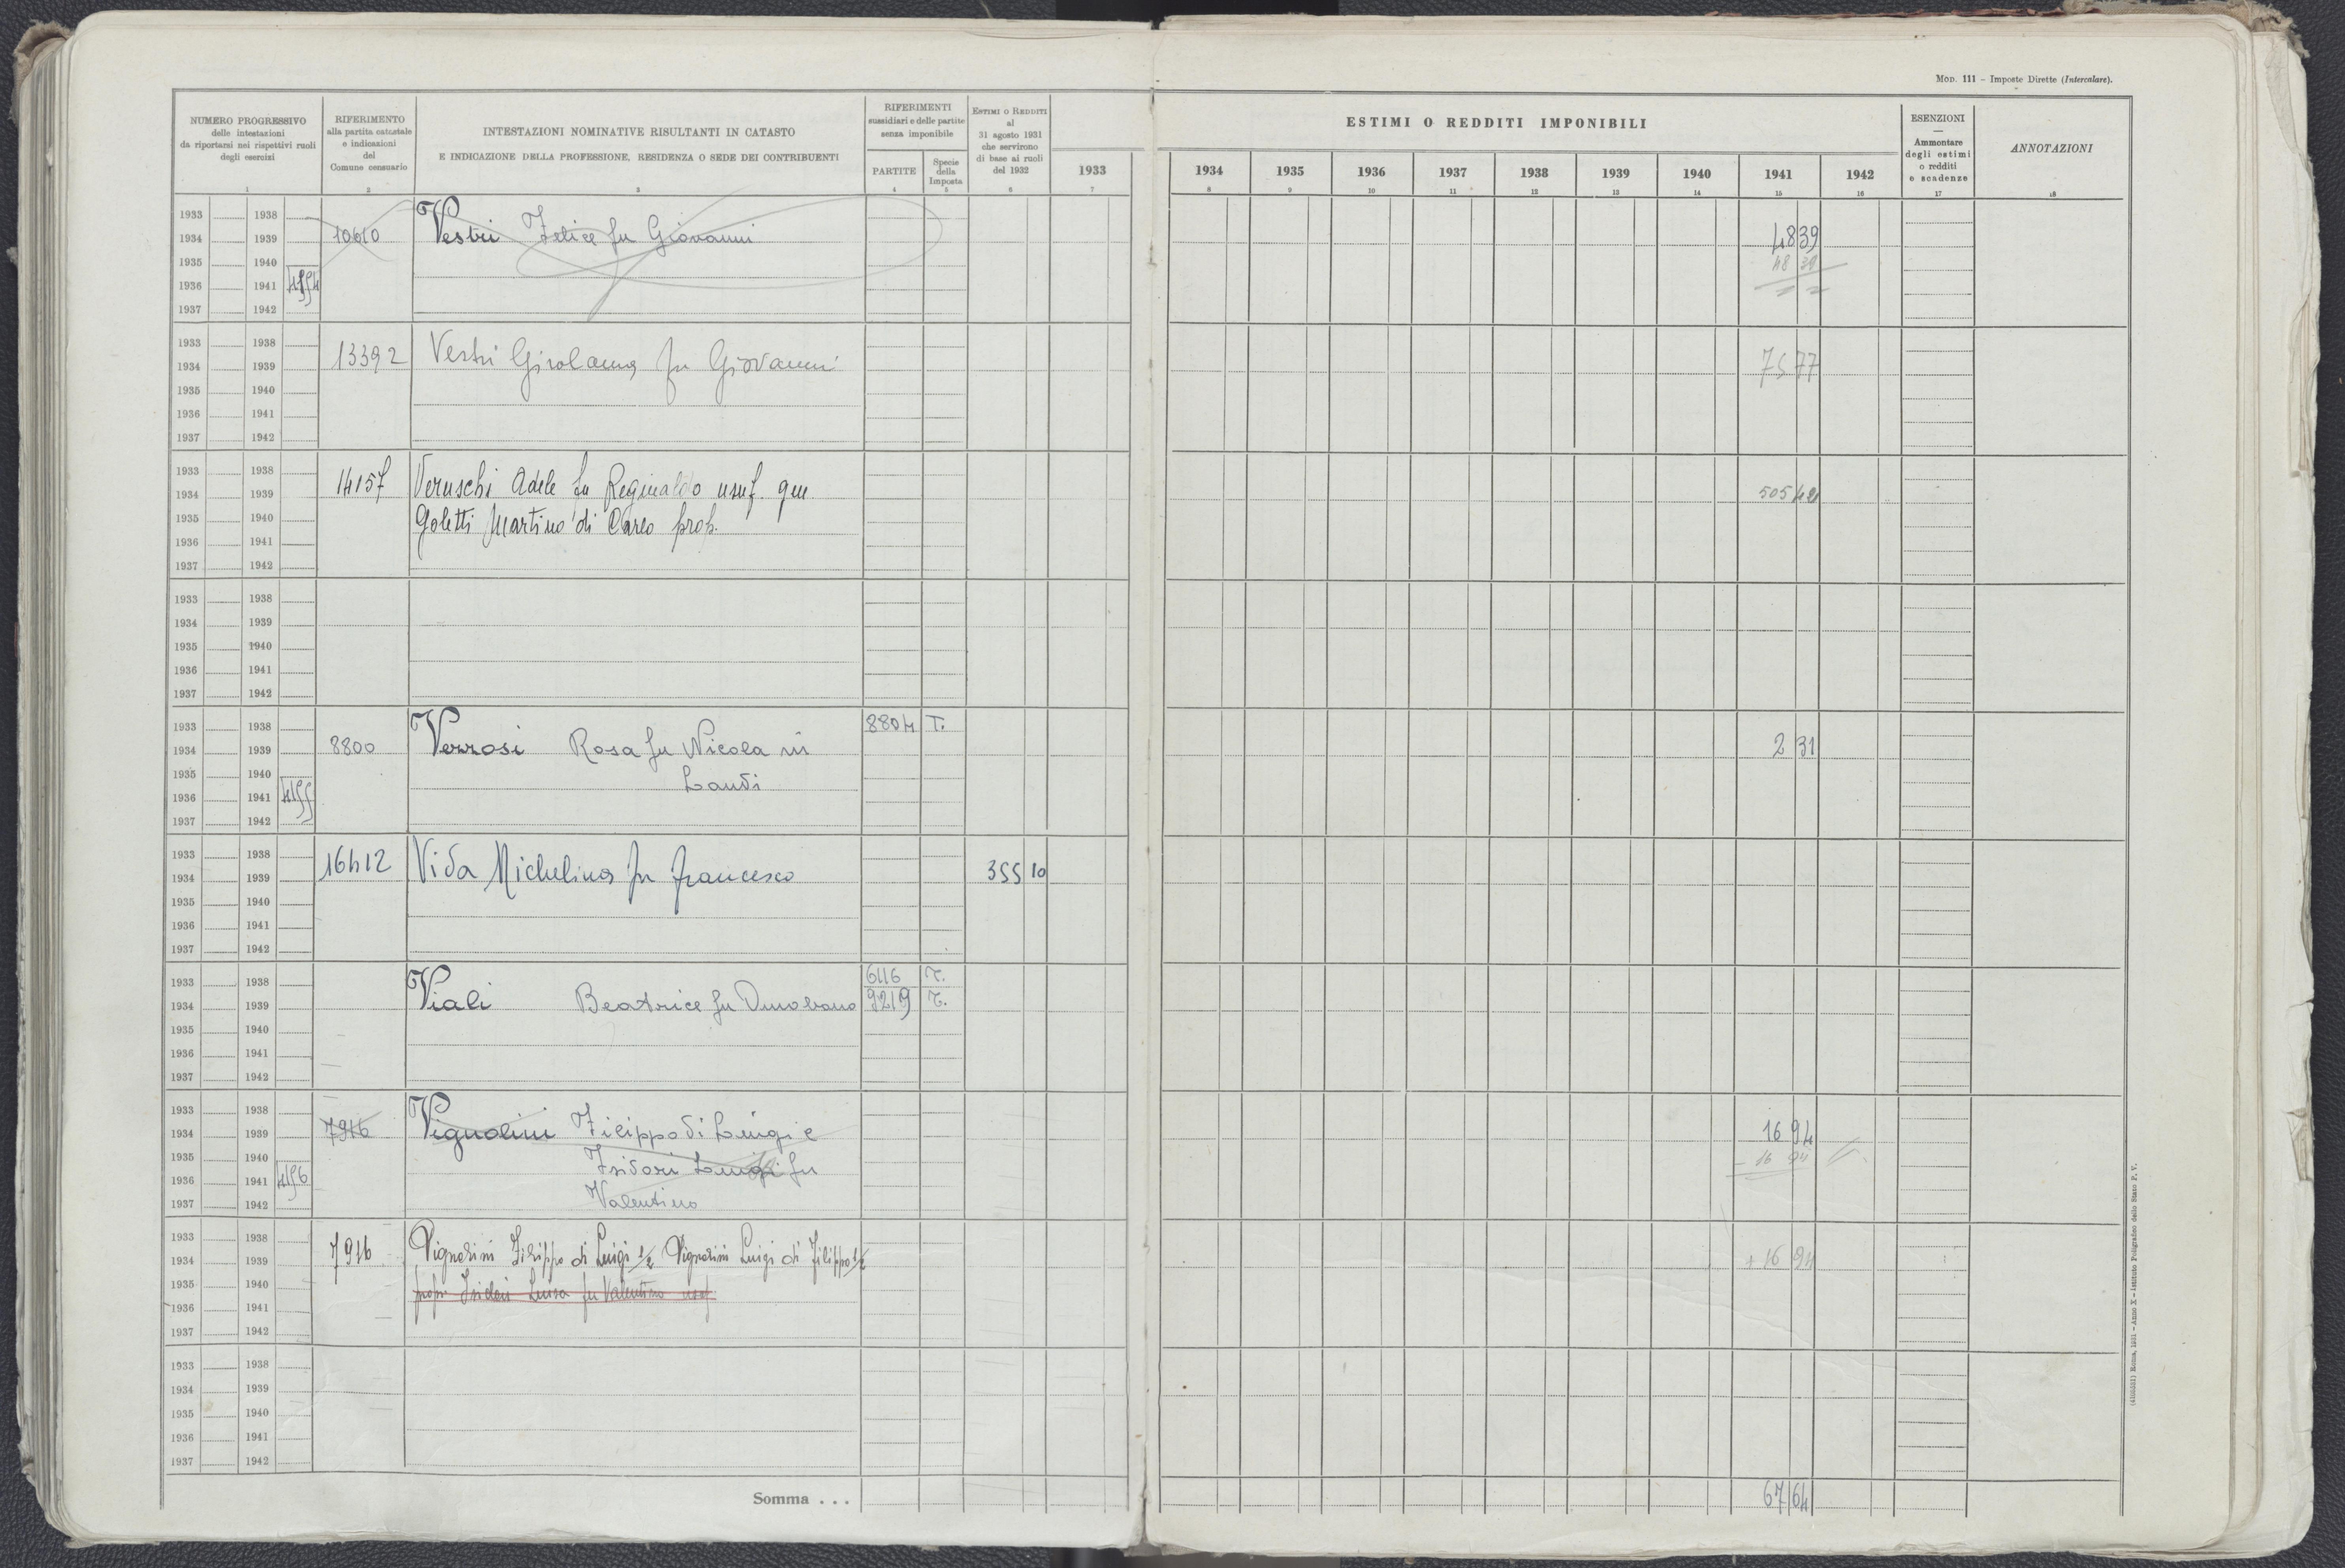 Mod. 111 - Imposte Dirette (Intercalare).
NUMERO PROGRESSIVO
delle intestazioni
da riportarsi nei rispettivi ruoli
degli esercizi
1
RIFERIMENTO
alla partita catastale
e indicazioni
del
Comune censuario
2
INTESTAZIONI NOMINATIVE RISULTANTI IN CATASTO
E INDICAZIONE DELLA PROFESSIONE, RESIDENZA O SEDE DEI CONTRIBUENTI
3
RIFERIMENTI
sussidiari e delle partite
senza imponibile
PARTITE
4
Specie
della
Imposta
5
Estimi o Redditi
al
31 agosto 1931
che servirono
di base ai ruoli
del 1932
6
1933
7
ESTIMI O REDDITI IMPONIBILI
1934 1935 1936 1937 1938 1939 1940 1941 1942
8 9 10 11 12 13 14 15 16
ESENZIONI
Ammontare
degli estimi
o redditi
e scadenze
17
ANNOTAZIONI
18
1933 1938
1934 1939 10610 Vestri Felice fu Giovanni 48 39
1935 1940 48 39
1936 1941 4154
1937 1942
1933 1938
1934 1939 13392 Vestri Girolama fu Giovanni 75 77
1935 1940
1936 1941
1937 1942
1933 1938
1934 1939 14157 Veruschi Adele fu Reginaldo usuf. gen
1935 1940 Goletti Martino di Carlo prop. 505 42
1936 1941
1937 1942
1933 1938
1934 1939
1935 1940
1936 1941
1937 1942
1933 1938 8804 T.
1934 1939 8800 Verrosi Rosa fu Nicola in 2 31
1935 1940 Landi
1936 1941 4155
1937 1942
1933 1938
1934 1939 16412 Vida Michelina fu Francesco 355 10
1935 1940
1936 1941
1937 1942
1933 1938 6116 T.
1934 1939 Viali Beatrice fu 9219 T.
1935 1940
1936 1941
1937 1942
1933 1938
1934 1939 7916 Vignolini Filippo di Luigi e 16 94
1935 1940 Isidori Luigi fu - 16 94
1936 1941 4156
1937 1942 Valentino
1933 1938
1934 1939 7916 Vignolini Filippo di Luigi 1/2 Vignolini Luigi di Filippo 1/2 + 16 94
1935 1940 propr Isidori Luisa fu Valentino usuf
1936 1941
1937 1942
1933 1938
1934 1939
1935 1940
1936 1941
1937 1942
Somma . . . 67 64
Roma, 1931 - Anno X - Istituto Poligrafico dello Stato P. V.